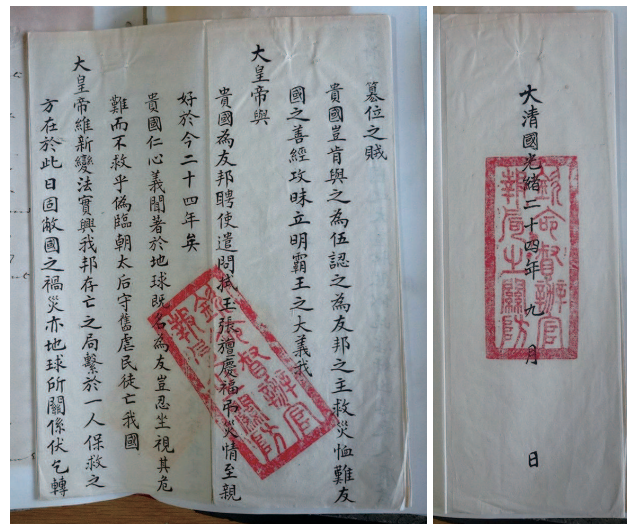 簒位之賊
貴國豈肯與之為伍認之為友邦之主救災恤難友
國之善經攻昧立明霸王之大義我
大皇帝與
貴國為友邦聘使遣問拭玉張旜慶福弔災情至親
好於今二十四年矣
貴國仁心義聞著於地球既名為友豈忍坐視其危
難而不救乎偽臨朝太后守舊虐民徒亡我國
大皇帝維新變法實興我邦存亡之局繫於一人保救之
方在於此日固敝國之禍災亦地球所關係伏乞轉
欽命督辦官
報局之關防
大清國光緒二十四年九月 日
欽命督辦官
報局之關防